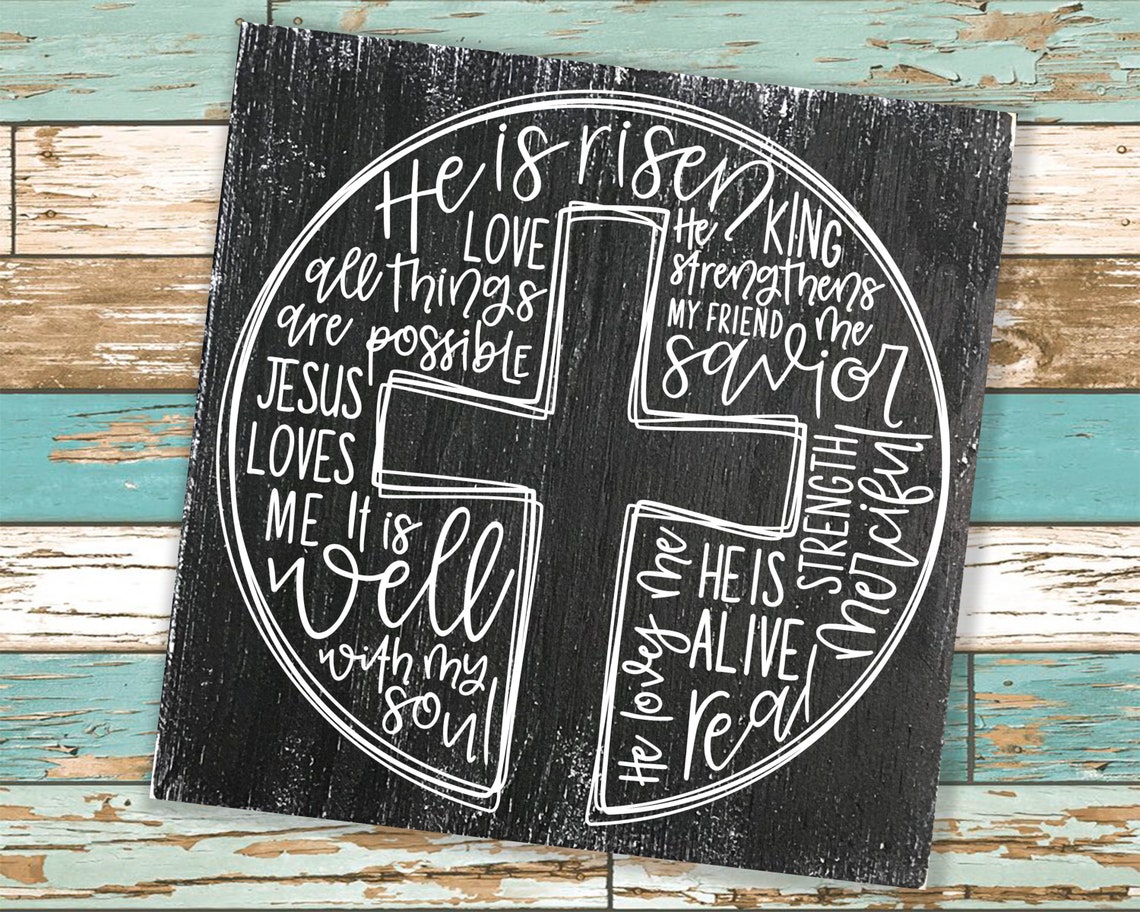 He is risen
LOVE
all things
are possible
JESUS
LOVES
ME
It is
well
with my
soul
KING
He
strengthens
me
MY FRIEND
savior
STRENGTH
merciful
He loves me
HE IS
ALIVE
real